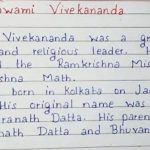 Swami Vivekananda
Vivekananda was a
and religious leader. H
the Ramkrishna Mis
shna Math.
born in Kolkata on Ja
His original name was
ranath Datta. His paren
nath Datta and Bhuvan